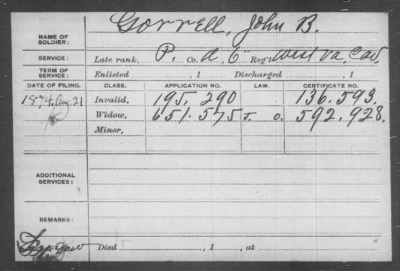 NAME OF SOLDIER: Gorrell, John B.
SERVICE: Late rank, P. Co. A, 6 Reg't West Va. Cav.
TERM OF SERVICE: Enlisted , 1 Discharged , 1
DATE OF FILING. CLASS. APPLICATION NO. LAW. CERTIFICATE NO.
1874, Aug. 21 Invalid, 195,290 136,593.
Widow, 651,575 592,928.
Minor,
ADDITIONAL SERVICES:
REMARKS:
Died , 1 , at